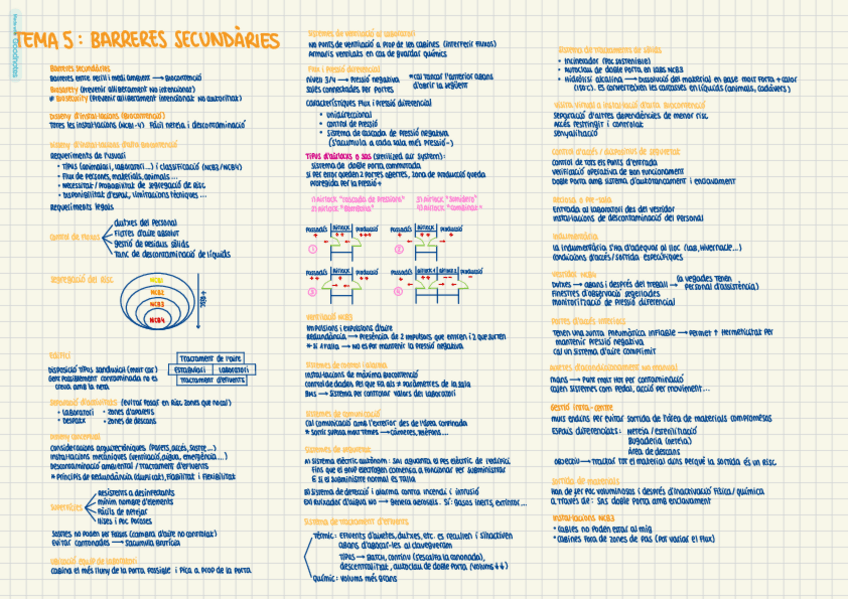 TEMA 5: BARRERES SECUNDÀRIES
Barreres secundàries
Barreres entre perill i medi ambient → Biocontenció
Biosafety (Prevenir alliberament no intencionat)
* Biosecurity (Prevenir alliberament intencionat no autoritzat)
Disseny d'instal·lacions (Biocontenció)
Totes les instal·lacions (NCB1-4) Fàcil neteja i descontaminació
Requeriments de treball
• Tipus (animalari, laboratori...) i classificació (NCB3/NCB4)
• Flux de persones, materials, animals...
• Necessitat/Probabilitat de segregació de risc
• Disponibilitat d'espai, limitacions tècniques...
Requeriments legals
Control de fluxos
dutxes del personal
Filtres d'aire absolut
Gestió de residus sòlids
Tanc de descontaminació de líquids
Segregació del risc
NCB1
NCB2
NCB3
NCB4
Edifici
Disposició tipus sandwich (molt car)
Tractament de l'aire
Estabulari laboratori
Tractament d'efluents
creua amb la neta
(evitar posar en risc zones que no cal)
• laboratori • zones d'animals
• Despatx • zones de descans
Disseny conceptual
Consideracions arquitectòniques (Parets, accés, sostre...)
Instal·lacions mecàniques (ventilació, aigua, emergència...)
Descontaminació ambiental / Tractament d'efluents
* Principis de redundància (duplicat), Fiabilitat i Flexibilitat
Superfícies
Resistents a desinfectants
mínim nombre d'elements
Fàcils de netejar
llises i poc poroses
Sostres no poden ser falsos (cambra d'aire no controlat)
Evitar cantonades → s'acumula brutícia
Ubicació equip de laboratori
Cabina el més lluny de la porta possible i pica a prop de la porta
Sistemes de ventilació al laboratori
No punts de ventilació a prop de les cabines (interferir fluxos)
Armaris ventilats en cas de guardar químics
Flux i pressió diferencial
Nivell 3/4 → Pressió negativa
*Cal tancar l'anterior abans d'obrir la següent
Sales connectades per portes
Característiques flux i pressió diferencial
• unidireccional
• control de pressió
• Sistema de cascada de pressió negativa
(s'acumula a cada sala més pressió -)
Tipus d'airlocks o SAS (Sterilized Air System):
Sistema de doble porta, commutada
Si per error queden 2 portes obertes, zona de producció queda
protegida per la pressió +
1) Airlock "cascada de pressions" 3) Airlock "Sumidero"
2) Airlock "Bombolla" 4) Airlock "combinat"
Passadís Airlock producció
①
Passadís Airlock producció
②
Passadís Airlock producció
③
Passadís Airlock 1 Airlock 2 producció
④
Ventilació NCB3
Impulsions i expulsions d'aire
Redundància → Presència de 2 impulsors que entren i 2 que surten
* Si falla → No es pot mantenir la pressió negativa
Instal·lacions de màxima biocontenció
BMS → Sistema per controlar valors del laboratori
Sistemes de comunicació
Cal comunicació amb l'exterior des de l'àrea confinada
* Sortir suposa molt temps → càmeres, telèfons...
Sistemes de seguretat
A) Sistema elèctric autònom: SAI aguanta el pes elèctric de l'edifici
Fins que el grup electrogen comença a funcionar per subministrar
E si el subministre normal es talla
B) Sistema de detecció i alarma contra incendi i intrusió
Sistema de tractament d'efluents
Tèrmic: efluents d'aixetes, dutxes, etc. es recullen i s'inactiven
abans d'abocar-les al clavegueram
Tipus → Batch, continu (s'escalfa la canonada),
descentralitzat, autoclau de doble porta (volums ↓↓)
Químic: volums més grans
Sistemes de tractaments de sòlids
• Incinerador (poc sostenible)
• Autoclau de doble porta en labs NCB3
• Hidròlisi alcalina → Dissolució del material en base molt forta + calor
(150°C). Es converteixen les carcasses en líquids (animals, cadàvers)
Visita virtual a instal·lació d'alta biocontenció
Separació d'altres dependències de menor risc
Accés restringit i controlat
Senyalització
Control d'accés / dispositius de seguretat
Control de tots els punts d'entrada
Verificació operativa de bon funcionament
Doble porta amb sistema d'autotancament i enclavament
Entrada al laboratori des del vestidor
Instal·lacions de descontaminació del personal
Indumentària
La indumentària s'ha d'adequar al lloc (lab, hivernacle...)
Condicions d'accés/sortida específiques
Vestidor NCB4
Dutxes → abans i després del treball → (a vegades tenen
personal d'assistència)
Finestres d'observació segellades
Monitorització de pressió diferencial
Portes d'accés interiors
Tenen una junta pneumàtica inflable → Permet ↑ hermeticitat per
mantenir pressió negativa
Cal un sistema d'aire comprimit
Mans → Punt molt hot per contaminació
Calen sistemes com pedal, acció per moviment...
Gestió intra-centre
Molts endins per evitar sortida de l'àrea de materials compromesos
Espais diferenciats: Neteja/esterilització
Bugaderia (neteja)
Àrea de descans
Objectiu → Tractar tot el material dins perquè la sortida és un risc
Sortida de materials
Han de ser poc voluminosos i després d'inactivació física/química
a través de: SAS doble porta amb enclavament
Instal·lacions NCB3
* Taules no poden estar al mig
* Cabines fora de zones de pas (pot variar el flux)